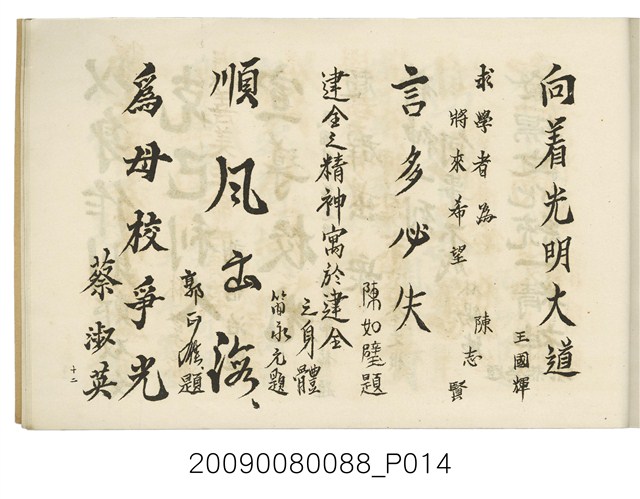 向着光明大道
王國輝
求學者為
將來希望
陳志賢
言多必失
陳如璧題
建全之精神寓於建全
之身體
笛永元題
順風出
郭正題
為母校爭光
蔡淑英
十二
20090080088_P014